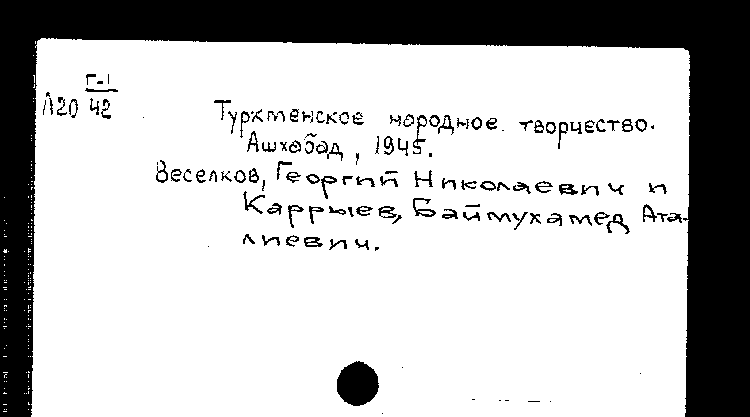 Г-1
Л20 42
Туркменское народное творчество.
Ашхабад, 1945.
Веселков, Георгий Николаевич и
Каррыев, Баймухамед Ата-
лиевич.